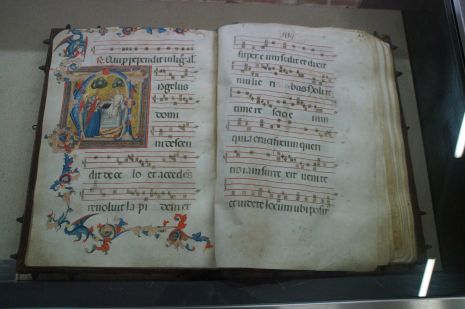 ngelus
domi
ni descen
dit de ce lo et accedens
revoluit la pi dem et
super e um sedit et dixit
mulie ri bus Nolit
timere scio e nim
quia crucifixum queri
surrexit venite
et videte locum ubi posit